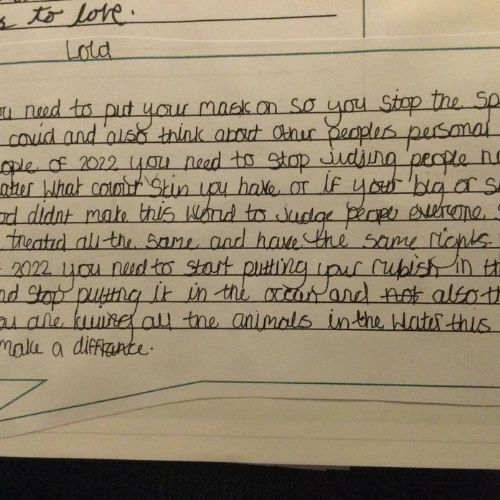 s to love.
Lola
ou need to put your mask on so you stop the sp
covid and also think about other peoples personal
ople of 2022 you need to stop judjing people no
atter what colour skin you have or if your big or s
od didnt make this world to judge people everyone s
treated all the same and have the same rights
2022 you need to start putting your rubish in th
nd stop putting it in the ocean and not also th
ou are killing all the animals in the water this
make a diffrance.